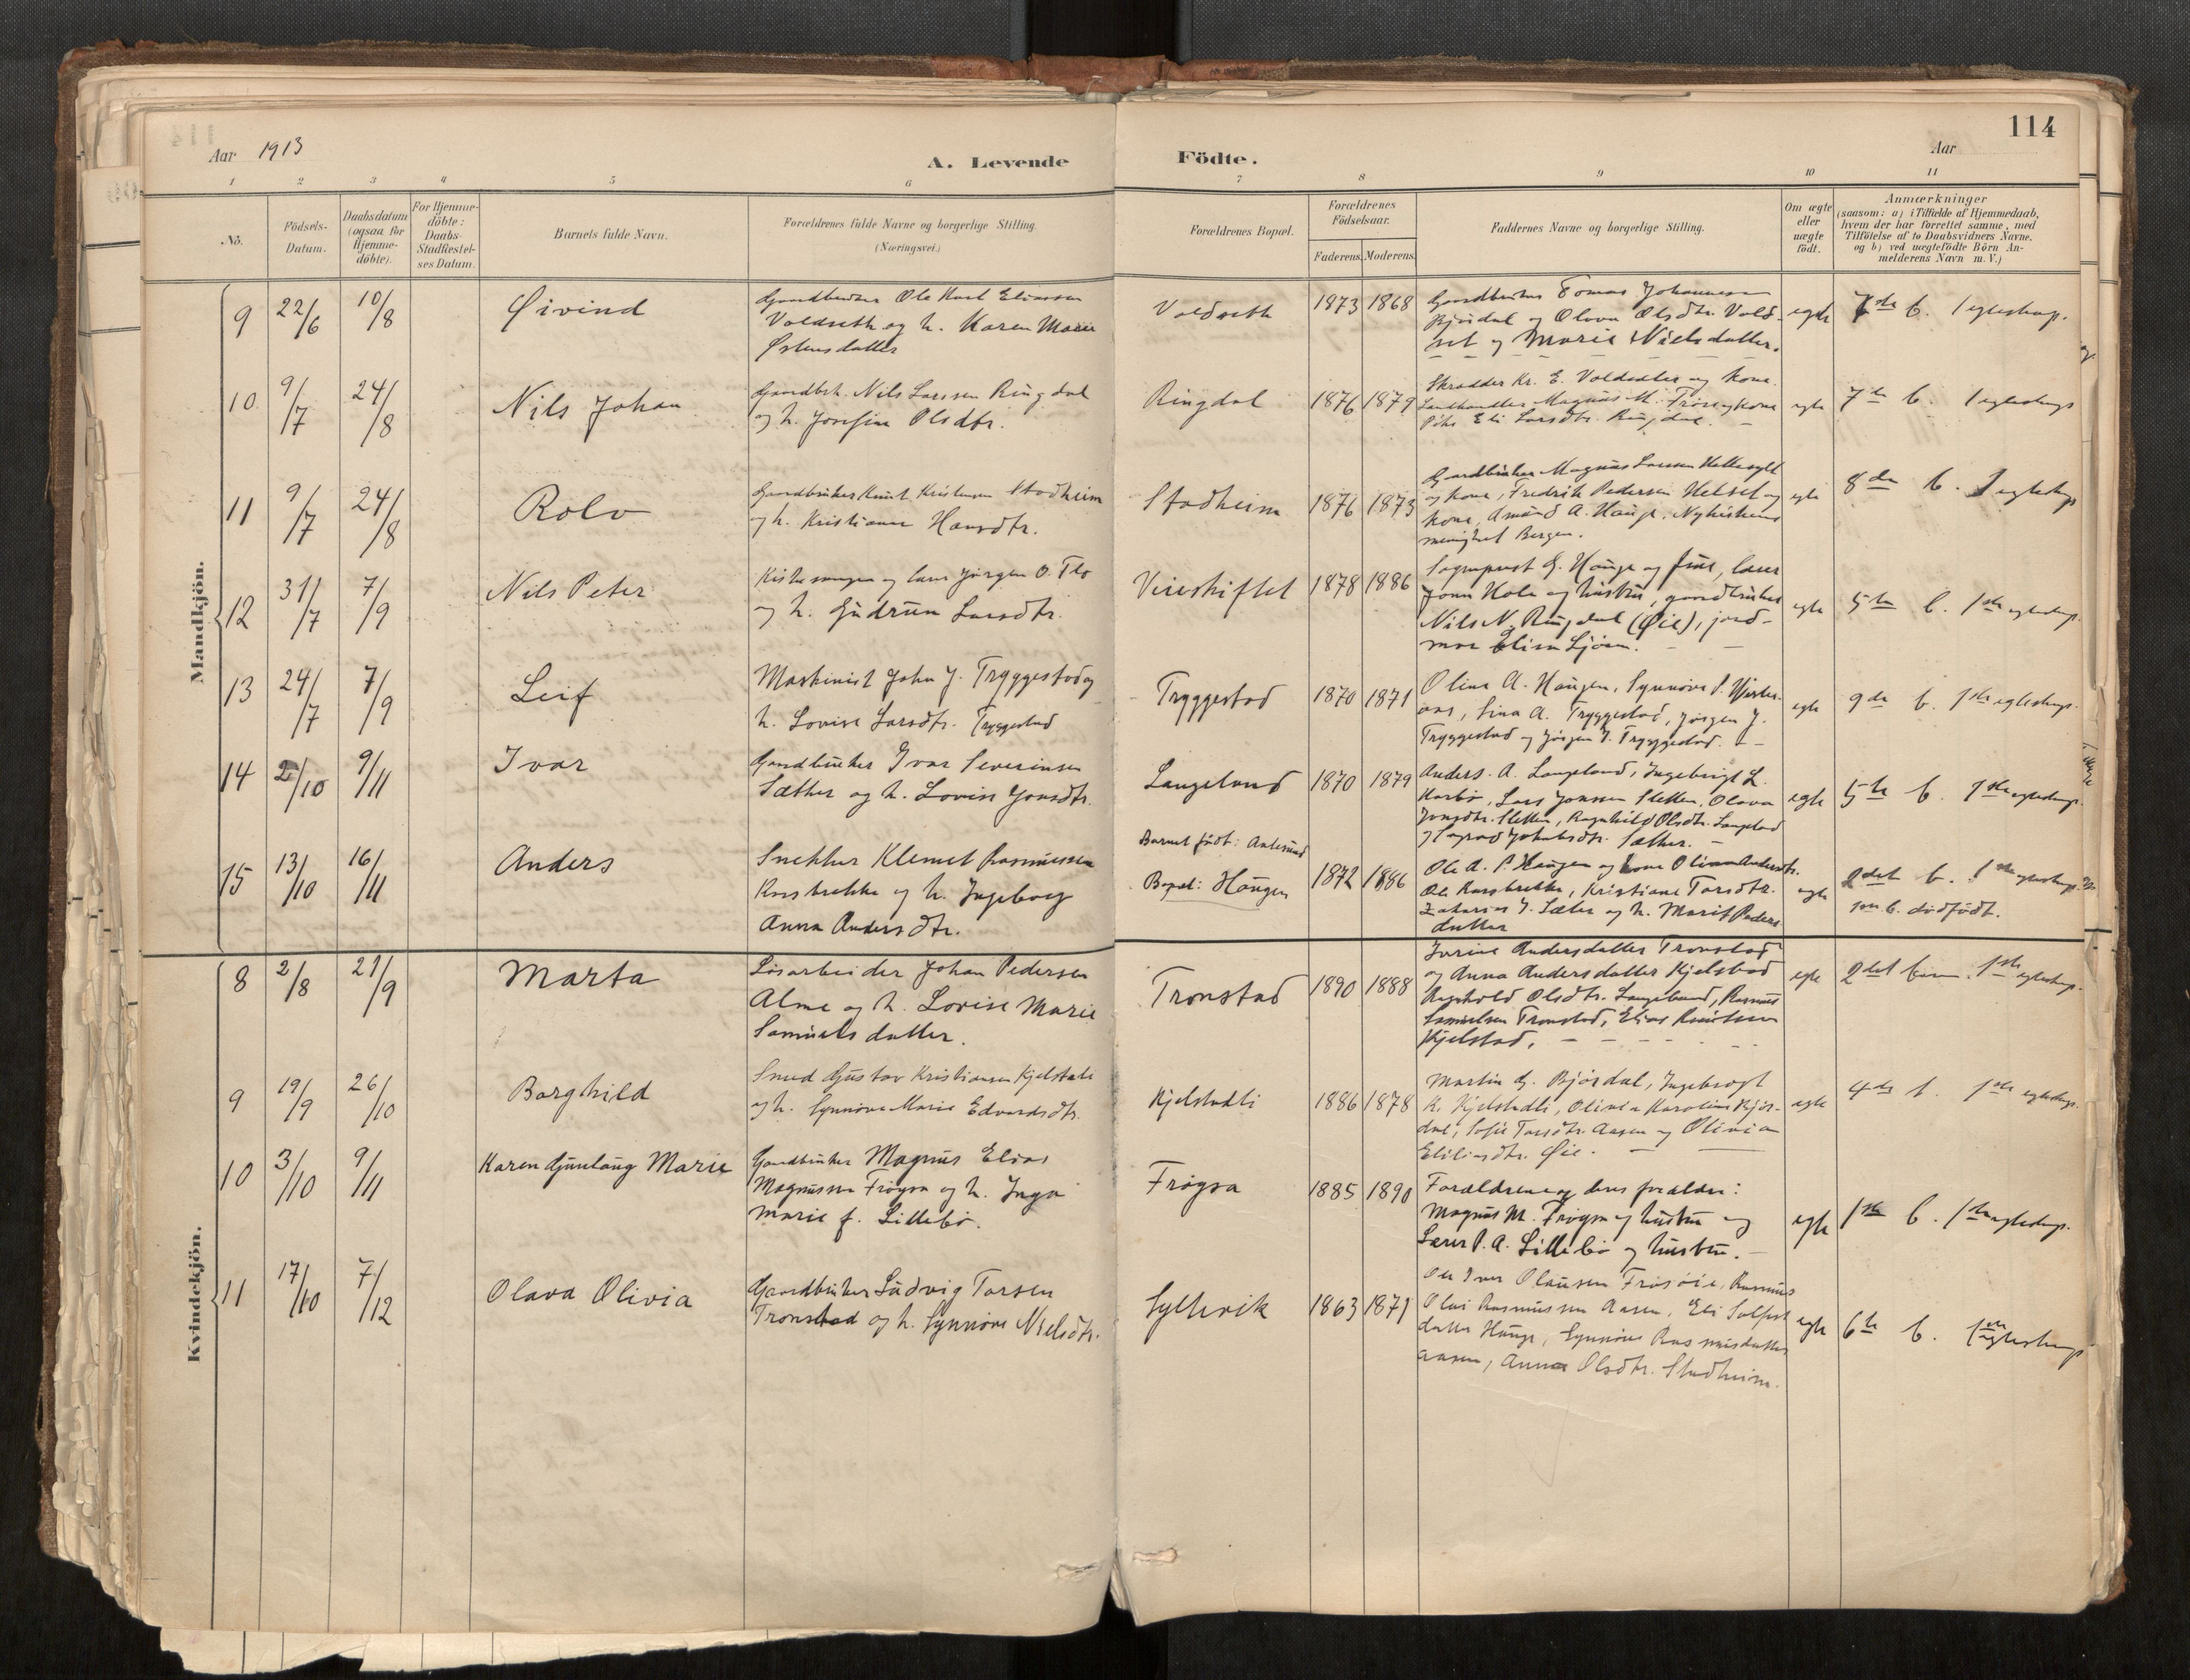 114
Aar 1913
A. Levende
Födte.
Aar
1 2 3 4 5 6 7 8 9 10 11
No.
Födsels-
Datum.
Daabsdatum
(ogsaa for
Hjemme-
döbte).
For Hjemme-
döbte:
Daabs-
Stadfæstel-
ses Datum.
Barnets fulde Navn.
Forældrenes fulde Navne og borgerlige Stilling.
(Næringsvei.)
Forældrenes Bopæl.
Forældrenes
Födselsaar.
Faderens. Moderens.
Faddernes Navne og borgerlige Stilling.
Om ægte
eller
uægte
födt.
Anmærkninger
(saasom: a) i Tilfælde af Hjemmedaab,
hvem der har forrettet samme, med
Tilföielse af to Daabsvidners Navne,
og b) ved uægtefödte Börn An-
melderens Navn m. V.)
Mandkjön.
9 22/6 10/8 Øivind
Gaardbruker Ole Karl Eliassen
Voldseth og h. Karen Marie
Østensdatter
Voldseth 1873 1868
Gaardbruker Tomas Johannesen
Bjørdal og Olava Olsdtr. Vold-
set og Marie Nielsdatter.
egte
7de b. 1 egteskap.
10 9/7 24/8 Nils Johan
Gaardbrk. Nils Larssen Ringdal
og h. Josefine Olsdtr.
Ringdal 1876 1879
Skrædder Kr. E. Voldsdal og kone
Landhandler Magnus M. og kone
Pike Eli Larsdtr. Ringdal.
egte
7de b. 1 egteskap
11 9/7 24/8 Rolv
Gaardbruker Knut Kristensen Stadheim
og h. Kristianna Hansdtr.
Stadheim 1876 1873
Gaardbruker Magnus Larsen Hellesylt
og kone, Fredrik Pedersen Helset og
kone, Amund A. Hauge, Nykirkens
menighet Bergen.
egte
8de b. 1 egteskap
12 31/7 7/9 Nils Peter
Kirkesanger og lærer Jørgen O. Flo
og h. Gudrun Larsdtr.
Vireskiftet 1878 1886
Sogneprest G. Hauge og frue, lærer
Jonn Hole og hustru, gaardbruker
Nils N. Ringdal (Øie), jord-
mor Elisa Ljøen.
egte
5te b. 1ste egteskap.
13 24/7 7/9 Leif
Maskinist John J. Tryggestad og
h. Lovise Larsdtr. Tryggestad
Tryggestad 1870 1871
Olina A. Haugen, Synnøve
Sina A. Tryggestad, Jørgen J.
Tryggestad og Jørgen J. Tryggestad.
egte
9de b. 1ste egteskap.
14 2/10 9/11 Ivar
Gaardbruker Ivar Severinsen
Sæther og h. Lovise Jonsdtr.
Langeland 1870 1879
Anders A. Langeland, Ingebrigt L.
Karbø, Lars Jonssen Sletten, Olava
Jonsdtr. Sletten, Ragnhild Olsdtr. Langeland
og Jakobsdtr. Sæther.
egte
5te b. 1ste egteskap.
15 13/10 16/11 Anders
Snekker Klemet Rasmussen
Korsbrekke og h. Ingeborg
Anna Andersdtr.
Barnet født: Aalesund
Bopæl: Haugen 1872 1886
Ole A. P. Haugen og kone Olina Andersdtr.
Ole Korsbrekke, Kristiane Torsdtr.
Zakarias J. Sæter og h. Marit Peders
datter
egte
2det b. 1ste egteskap.
1ste b. dødfødt.
Kvindekjön.
8 2/8 21/9 Marta
Løsarbeider Johan Pedersen
Alme og h. Lovise Marie
Samuelsdatter.
Tronstad 1890 1888
Jorine Andersdatter Tronstad
og Anna Andersdatter Kjelstad
Ragnhild Olsdtr. Langeland, Rasmus
Samuelsen Tronstad, Elias Knutsen
Kjelstad.
egte
2det barn. 1ste egteskap.
9 19/9 26/10 Borghild
Smed Gustav Kristiansen Kjelstadli
og h. Synnøve Marie Edvardsdtr.
Kjelstadli 1886 1878
Martin G. Bjørdal, Ingebrigt
K. Kjelstadli, Olivia Karoline Bjør-
dal, Sofie Torsdtr. Aasen og Olivia
Øie.
egte
4de b. 1ste egteskap.
10 3/10 9/11 Karen Gunlaug Marie
Gaardbruker Magnus Elias
Magnussen Frøysa og h. Inga
Marie f. Lillebø.
Frøysa 1885 1890
Forældrene og deres forældre:
Magnus M. Frøysa og hustru og
Lærer P. A. Lillebø og hustru.
egte
1ste b. 1ste egteskap.
11 17/10 7/12 Olava Olivia
Gaardbruker Ludvig Torsen
Tronstad og h. Synnøve Nielsdtr.
Syltevik 1863 1871
Ole Iver Olausen Rasmus
Olai Rasmussen Aasen, Eli
datter Hauge, Synnøve Rasmusdatter
Aasen, Anna Olsdtr. Stadheim.
egte
6te b. 1ste egteskap